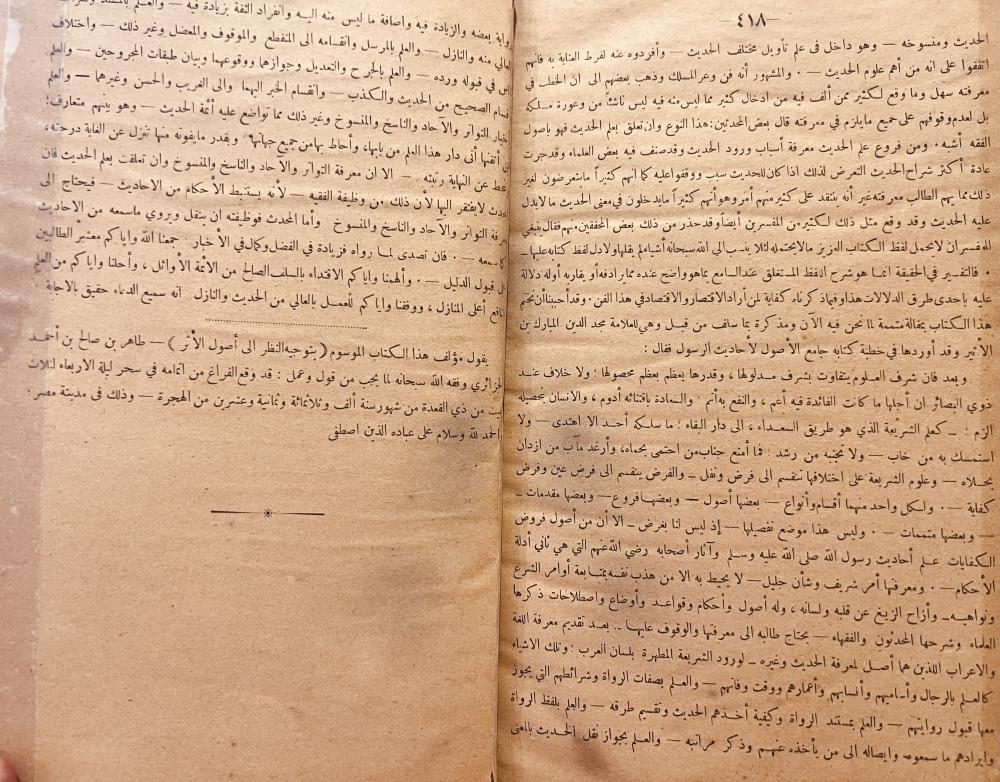 — ٤١٨ —
الحديث ومنسوخه — وهو داخل في علم تأويل مختلف الحديث — وأفردوه عنه لفرط العناية به فانهم
اتفقوا على انه من أهم علوم الحديث — . والمشهور أنه فن وعر المسلك وذهب بعضهم الى ان الخطب في
معرفته سهل وما وقع لكثير ممن ألف فيه من ادخال كثير مما ليس منه فيه ليس ناشئا من وعورة مسلكه
بل لعدم وقوفهم على جميع ما يلزم في معرفته قال بعض المحدثين : هذا النوع وان تعلق بعلم الحديث فهو باصول
الفقه أشبه . ومن فروع علم الحديث معرفة أسباب ورود الحديث وقد صنف فيه بعض العلماء وقد جرت
عادة أكثر شراح الحديث التعرض لذلك اذا كان للحديث سبب ووقفوا عليه كما انهم كثيراً ما يتعرضون لغير
ذلك مما يهم الطالب معرفته غير أنه ينتقد على كثير منهم أمر وهو أنهم كثيراً ما يدخلون في معنى الحديث ما لا يدل
عليه الحديث وقد وقع مثل ذلك لكثير من المفسرين أيضاً وقد حذر من ذلك بعض المحققين منهم فقال ينبغي
للمفسر ان لا يحمل لفظ الكتاب العزيز ما لا يحتمله لئلا ينسب الى الله سبحانه أشياء لم يقلها ولا دل لفظ كتابه عليها —
. فالتفسير في الحقيقة انما هو شرح اللفظ المستغلق عند السامع بما هو واضح عنده مما يرادفه أو يقاربه أو له دلالة
عليه باحدى طرق الدلالات هذا وفيما ذكرناه كفاية لمن أراد الاقتصار والاقتصاد في هذا الفن . وقد أحببنا أن نختم
هذا الكتاب بمقالة متممة لما نحن فيه الآن ومذكرة بما سلف من قبل وهي للعلامة مجد الدين المبارك بن
الأثير وقد أوردها في خطبة كتابه جامع الأصول لأحاديث الرسول فقال :
وبعد فان شرف العلوم يتفاوت بشرف مدلولها ، وقدرها يعظم بعظم محصولها ؛ ولا خلاف عند
ذوي البصائر ان أجلها ما كانت الفائدة فيه أعم ، والنفع به أتم والسعادة باقتنائه أدوم ، والانسان بتحصيله
الزم ؛ — كعلم الشريعة الذي هو طريق السعداء ، الى دار البقاء ؛ ما سلكه أحد الا اهتدى — ولا
استمسك به من خاب — ولا تجنبه من رشد فما أمنع جناب من احتمى بحماه، وأرغد مآب من ازدان
بحلاه — وعلوم الشريعة على اختلافها تنقسم الى فرض ونفل — والفرض ينقسم الى فرض عين وفرض
كفاية — . ولكل واحد منهما أقسام وأنواع — بعضها أصول — وبعضها فروع — وبعضها مقدمات —
— وبعضها متممات — . وليس هذا موضع تفصيلها — إذ ليس لنا بغرض — الا أن من أصول فروض
الكفايات علم أحاديث رسول الله صلى الله عليه وسلم وآثار أصحابه رضي الله عنهم التي هي ثاني أدلة
الأحكام — . ومعرفتها أمر شريف وشأن جليل — لا يحيط به الا من هذب نفسه بمتابعة أوامر الشرع
ونواهيه — وأزاح الزيغ عن قلبه ولسانه ، وله أصول وأحكام وقواعد وأوضاع واصطلاحات ذكرها
العلماء وشرحها المحدثون والفقهاء — يحتاج طالبه الى معرفتها والوقوف عليها — بعد تقديم معرفة اللغة
والاعراب اللذين هما أصل لمعرفة الحديث وغيره — لورود الشريعة المطهرة بلسان العرب ؛ وتلك الاشياء
كالعلم بالرجال وأساميهم وأنسابهم وأعمارهم ووقت وفاتهم — والعلم بصفات الرواة وشرائطهم التي يجوز
معها قبول روايتهم — والعلم بمستند الرواة وكيفية أخذهم الحديث وتقسيم طرقه — والعلم بلفظ الرواة
وايرادهم ما سمعوه وايصاله الى من يأخذه عنهم وذكر مراتبه — والعلم بجواز نقل الحديث بالمعنى
رواية بعضه والزيادة فيه واضافة ما ليس منه اليه وانفراد الثقة بزيادة فيه — والعلم بالمسند
العالي منه والنازل — والعلم بالمرسل وانقسامه الى المنقطع والموقوف والمعضل وغير ذلك — واختلاف
الناس في قبوله ورده — والعلم بالجرح والتعديل وجوازها ووقوعهما وبيان طبقات المجروحين — والعلم
بأقسام الصحيح من الحديث والكذب — وانقسام الخبر اليهما والى الغريب والحسن وغيرهما — والعلم
بأخبار التواتر والآحاد والناسخ والمنسوخ وغير ذلك مما تواضع عليه أئمة الحديث — وهو بينهم متعارف؛
فمن أتقنها أتى دار هذا العلم من بابها، وأحاط بها من جميع جهاتها، وبقدر ما يفوته منها تنزل عن الغاية درجته،
وتنحط عن النهاية رتبته — الا ان معرفة التواتر والآحاد والناسخ والمنسوخ وان تعلقت بعلم الحديث فان
المحدث لا يفتقر اليها لأن ذلك من وظيفة الفقيه — لأنه يستنبط الأحكام من الاحاديث — فيحتاج الى
معرفة التواتر والآحاد والناسخ والمنسوخ وأما المحدث فوظيفته ان ينقل ويروي ما سمعه من الاحاديث
كما سمعه — . فان تصدى لما رواه فزيادة في الفضل وكمال في الأخبار جمعنا الله واياكم معشر الطالبين
على قبول الدليل — . وألهمنا واياكم الاقتداء بالسلف الصالح من الأئمة الأوائل ، وأحلنا واياكم من العلم
النافع أعلى المنازل ، ووفقنا واياكم للعمل بالعالي من الحديث والنازل انه سميع الدعاء حقيق بالاجابة .
يقول مؤلف هذا الكتاب الموسوم ( بتوجيه النظر الى أصول الأثر ) — طاهر بن صالح بن أحمد
الجزائري وفقه الله سبحانه لما يحب من قول وعمل : قد وقع الفراغ من اتمامه في سحر ليلة الاربعاء لثلاث
بقيت من ذي القعدة من شهور سنة ألف وثلاثمائة وثمانية وعشرين من الهجرة — وذلك في مدينة مصر .
والحمد لله وسلام على عباده الذين اصطفى